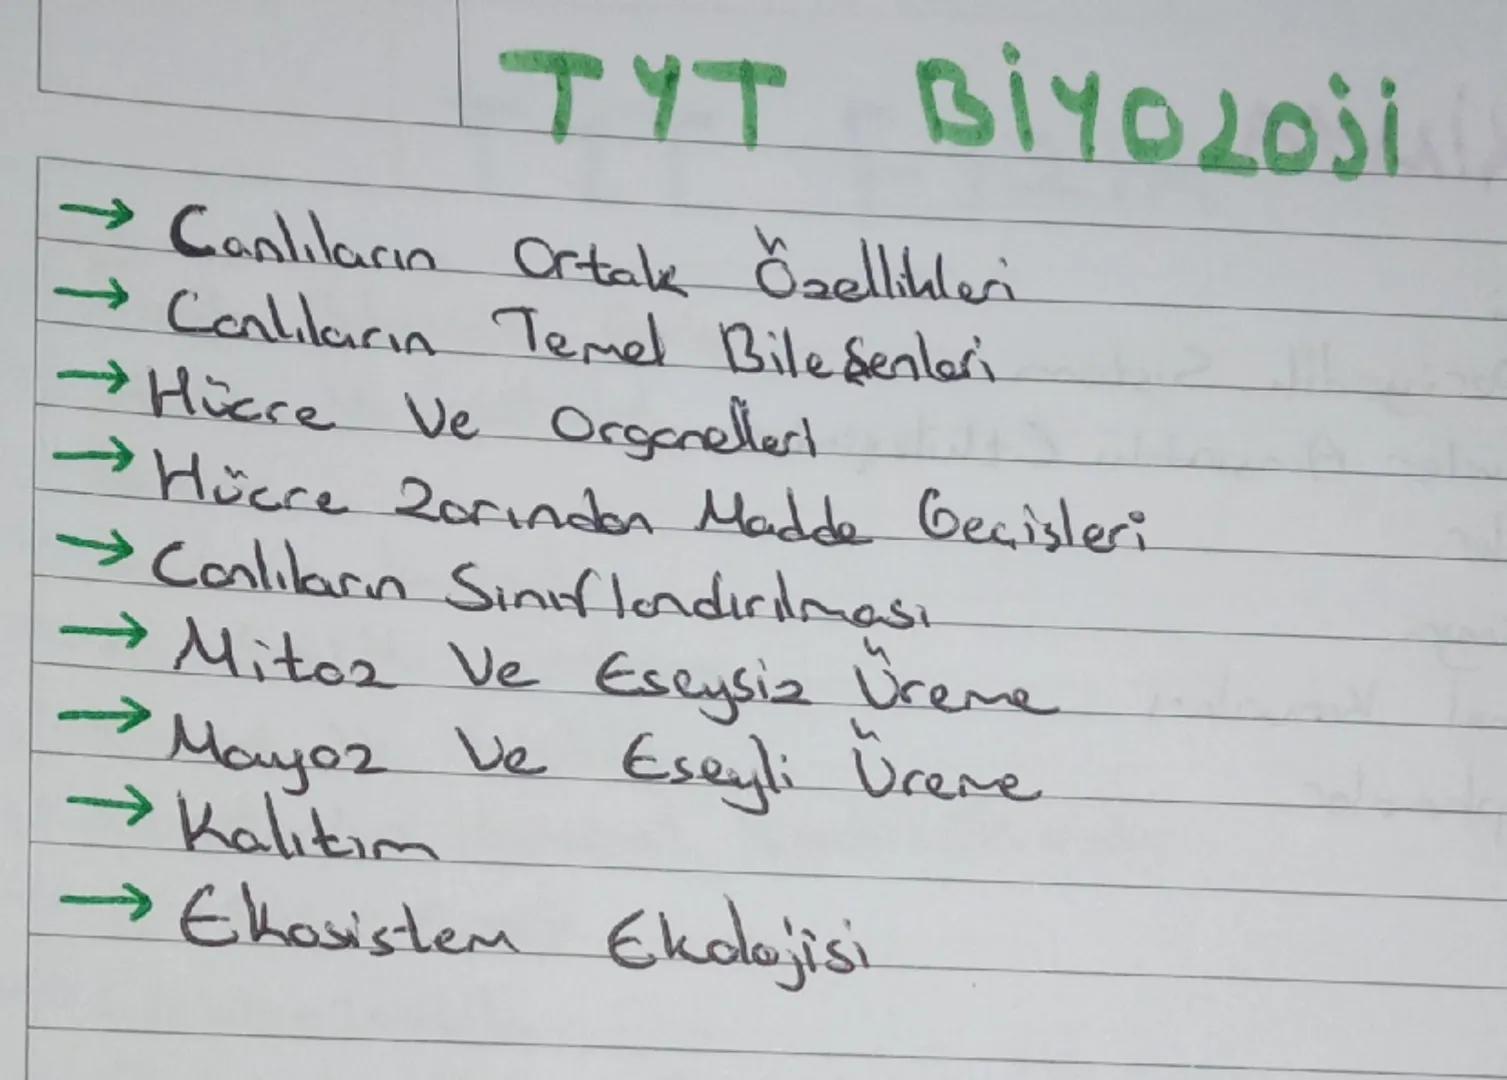 TYT BİYOLOJİ
→ Canlıların Ortak Özellikleri
→ Canlıların Temel Bileşenleri
→ Hücre Ve Organelleri
→ Hücre Zarından Madde Geçişleri
→ Canlıların Sınıflandırılması
→ Mitoz Ve Eşeysiz Üreme
→ Mayoz Ve Eşeyli Üreme
→ Kalıtım
→ Ekosistem Ekolojisi